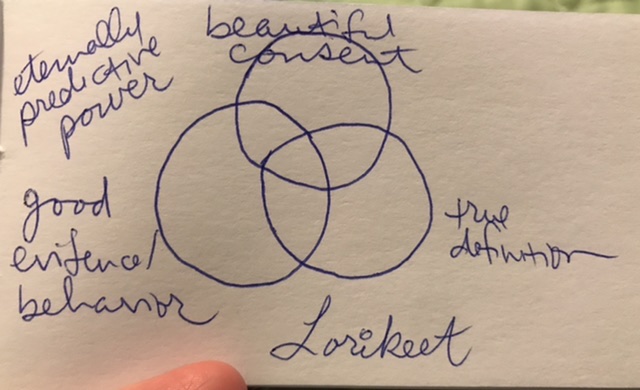 eternally
predictive
power
beautiful
consent
good
evidence/
behavior
true
definition
Lorikeet